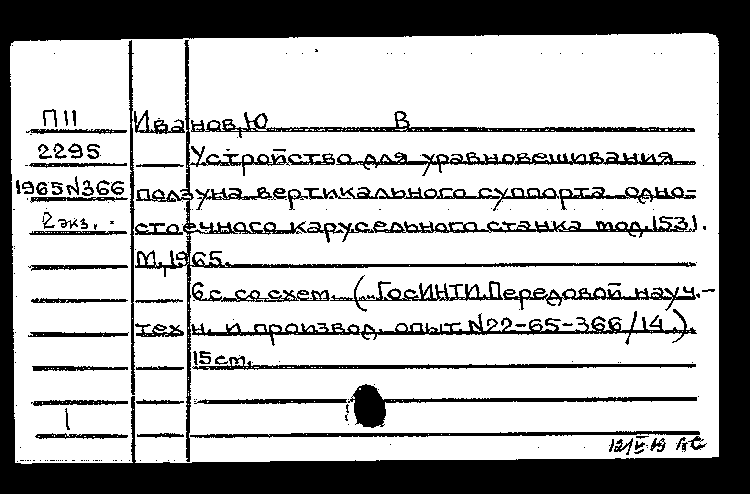 П11 Иванов, Ю В
2295 Устройство для уравновешивания
1965 N366 ползуна вертикального суппорта одно-
2 экз. стоечного карусельного станка мод. 1531.
М., 1965.
6 с. со схем. (ГосИНТИ. Передовой науч.-
техн. и производ. опыт. N22-65-366/14.).
15 cm.
1